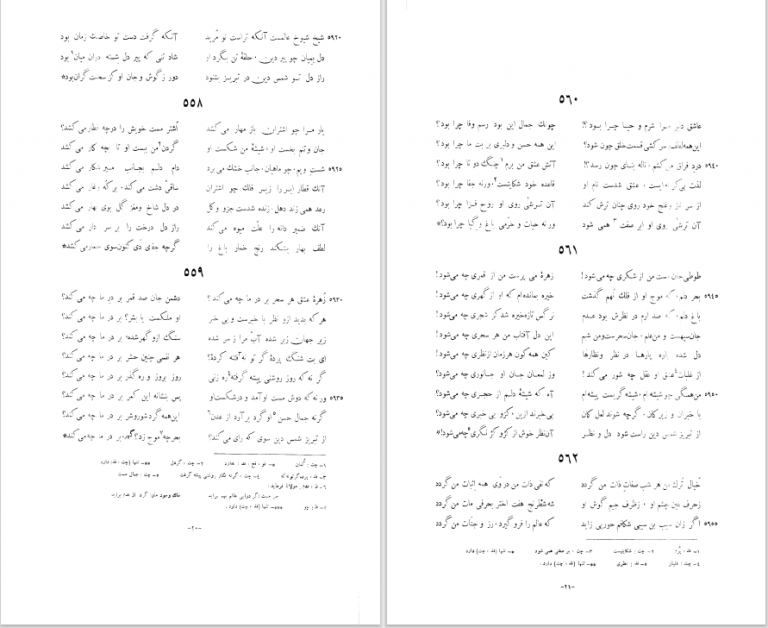 ۵۹۲۰ شیخ شیوخ عالمست آنکه تراست نو مُرید آنکه گرفت دست تو خاصهٔ زمان بود
دل بمیان چو پیر دین حلقهٔ تن بگرد او شاد تنی که پیر دل شسته در آن میان بود
راز دل تو شمس دین در تبریز بشنود دور ز گوش و جان او کز سخنت گران بود*
۵۵۸
یار مرا چو اشتران باز مهار می کشد اشتر مست خویش را در چه قطار می کشد؟
جان و تنم بخست او شیشهٔ من شکست او گردن من ببست او تا بچه کار می کشد؟
۵۹۲۵ شست ویم چو ماهیان جانب خشک می برد دام دلم بجانب میر شکار می کشد
آنک قطار ابر را زیر فلک چو اشتران ساقی دشت می کند برکه و غار می کشد
رعد همی زند دهل زنده شدست جزو و کل در دل شاخ و مغز گل بوی بهار می کشد
آنک ضمیر دانه را علّت میوه می کند راز دل درخت را بر سر دار می کشد
لطف بهار بشکند رنج خمار باغ را گرچه جفای دی کنون سوی خمار می کشد*
۵۵۹
۵۹۳۰ زُهرهٔ عشق هر سحر بر در ما چه می کند؟ دشمن جان صد قمر بر در ما چه می کند؟
هر که بدید ازو نظر با خبرست و بی خبر او ملکست یا بشر؟ بر در ما چه می کند؟
زیر جهان زبر شده آب مرا ز سر شده سنگ ازو گهر شده بر در ما چه می کند؟
ای بت شنگ پردهٔ گر تو نه آفتهٔ کردهٔ؟ هر نفسی چنین حشر بر در ما چه می کند؟
گر نه که روز روشنی پیشه گرفته ره زنی روز بروز و ره گذر بر در ما چه می کند؟
۵۹۳۵ ور نه که دوش مست او آمد و درشکست او پس بنشانه این کمر بر در ما چه می کند؟
گرنه جمال حسن او گرد برآرد از عدن این همه گرد شور و شر بر در ما چه می کند؟
از تبریز شمس دین سوی که رای می کند؟ بحر چه موج زد؟ گهر بر در ما چه می کند؟*
-۲۰-
۵۶۰
عاشق دلبر مرا شرم و حیا چرا بود؟! چونک جمال این بود رسم وفا چرا بود؟
این همه لطف و سرکشی قسمت خلق چون شود؟ این همه حسن و دلبری بر بت ما چرا بود؟
۵۹۴۰ درد فراق من کشم ناله بنای چون رسد؟! آتش عشق من برم چنگ دوتا چرا بود؟
لذّت بی کرانه ایست عشق شدست نام او قاعده خود شکایتست ورنه جفا چرا بود؟
از سر ناز و غنج خود روی چنان ترش کند آن ترشی روی او روح فزا چرا بود؟
آن ترشی روی او ابر صفت همی شود ورنه حیات و خرّمی باغ و گیا چرا بود؟*
۵۶۱
طوطی جان مست من از شکری چه می شود! زهرهٔ می پرست من از قمری چه می شود!
۵۹۴۵ بحر دلم که موج او از فلک نهم گذشت خیره بمانده ام که او از گهری چه می شود!
باغ دلم که صد ارم در نظرش بود عدم نرگس تازه خیره شد کز شجری چه می شود!
جان سپهست و من علم جان سحرست و من شبم این دل آفتاب من هر سحری چه می شود!
دل شده پاره پارها در نظر و نظارها کین همه کون هر زمان از نظری چه می شود!
از غلبات عشق او عقل چه شور می کند! وز لمعان جان او جانوری چه می شود!
۵۹۵۰ من همگی چو شیشه ام شیشه گریست پیشه ام آه که شیشهٔ دلم از حجری چه می شود!
با خبران و زیرکان گرچه شوند لعل کان بی خبرند ازین کزو بی خبری چه می شود!
از تبریز شمس دین راست شود دل و نظر آن نظر خوش از کژو کژ نگری چه می شود!*
۵۶۲
خیال ترک من هر شب صفات ذات من گردد که نفی ذات من در وی همه اثبات من گردد
ز حرف عین چشم او ز ظرف جیم گوش او شه شطرنج هفت اختر بحرفی مات من گردد
۵۹۵۵ اگر زان سیب بن سیبی شکافم حوریی زاید که عالم را فرو گیرد رز و جنّات من گردد
-۲۱-